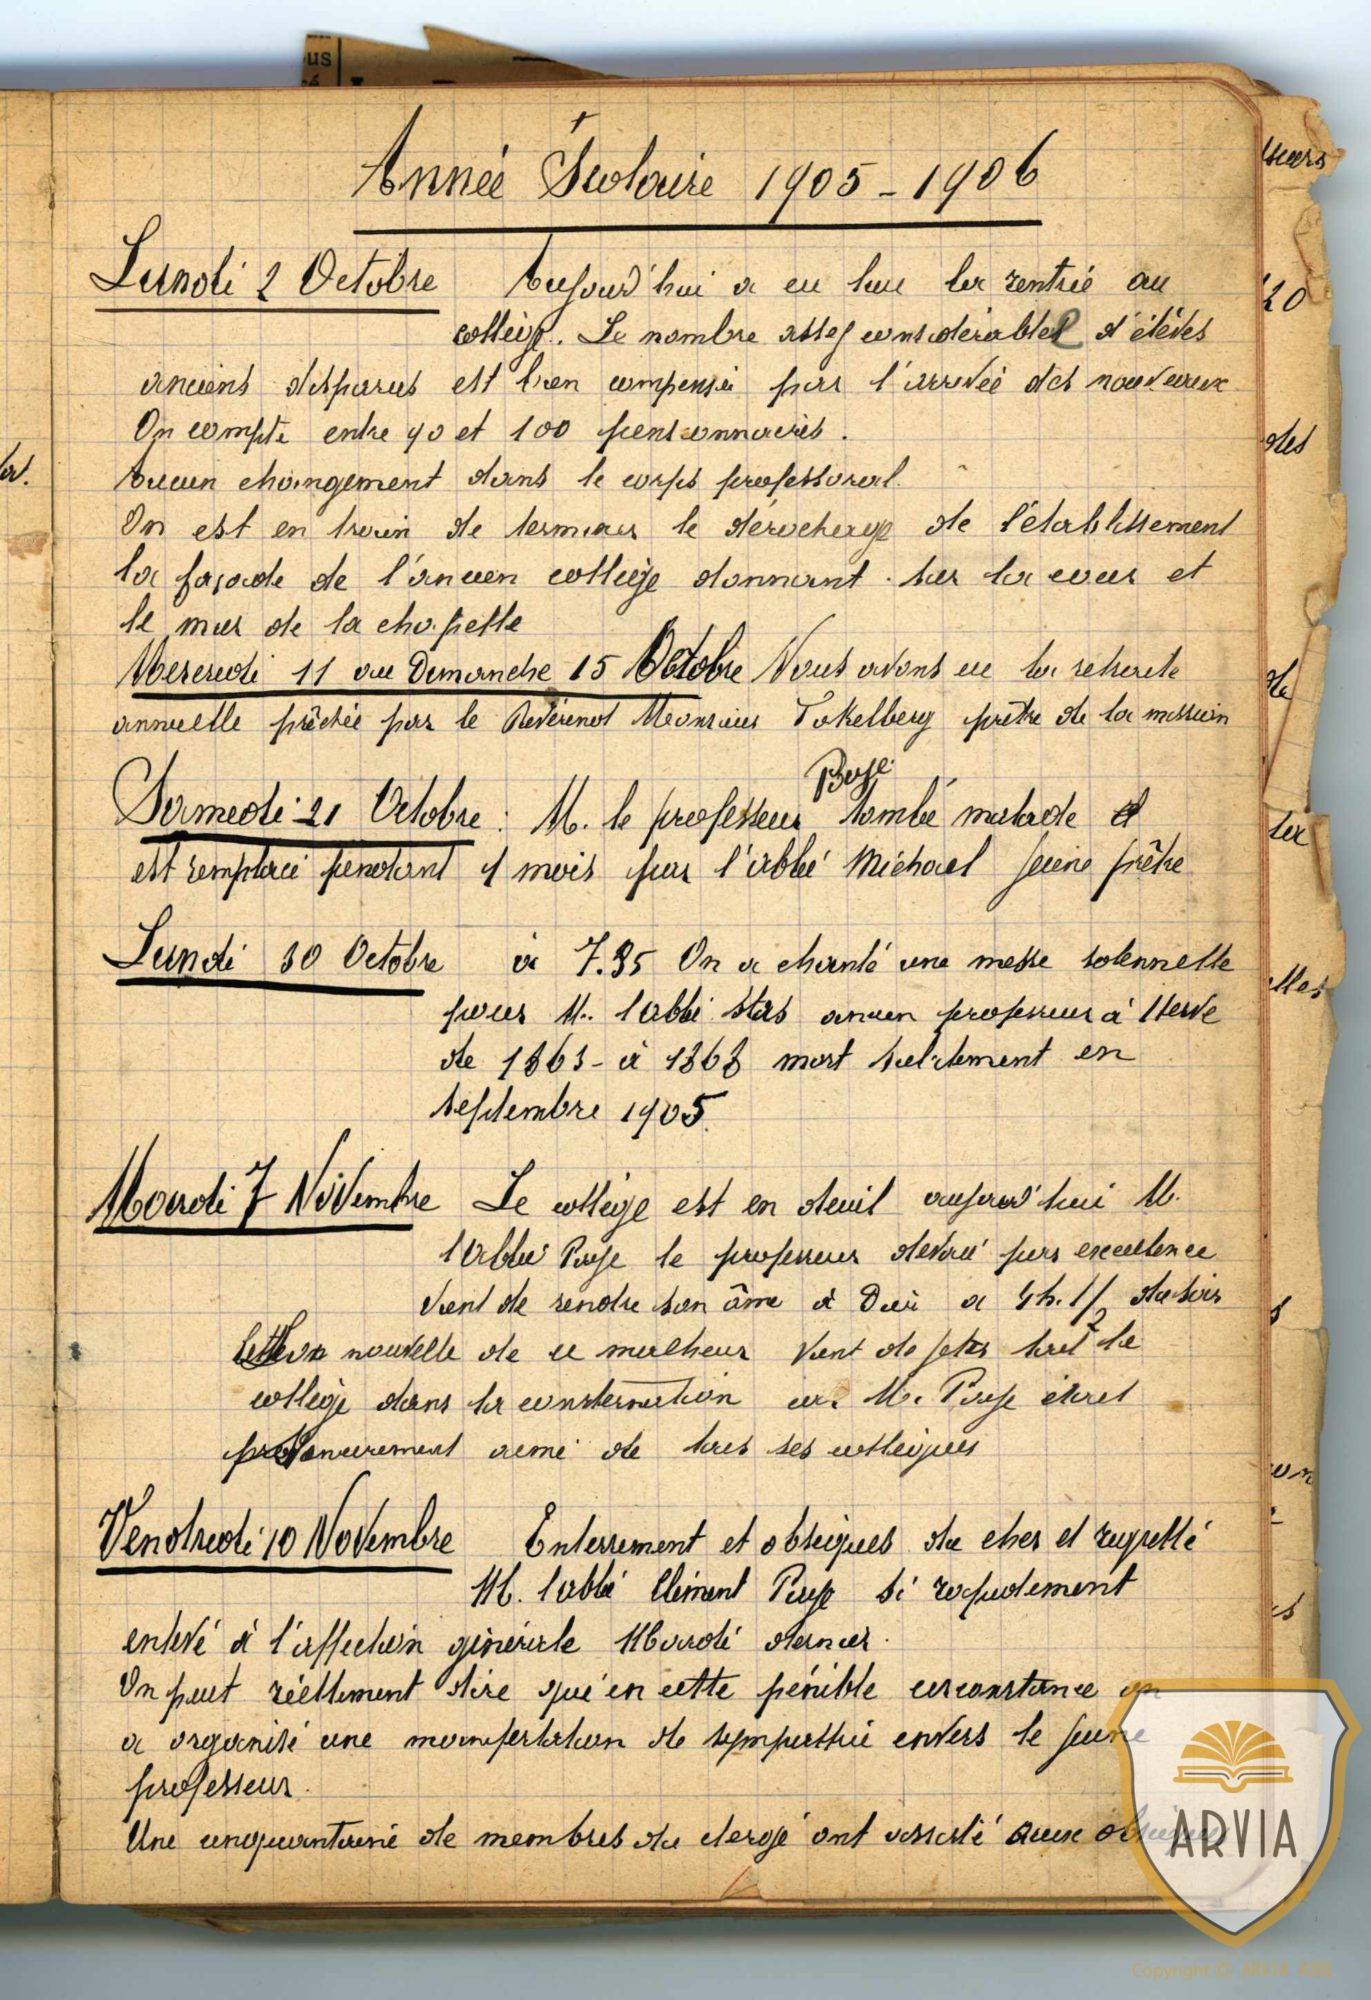 us
Année Scolaire 1905 - 1906
Lundi 2 Octobre Aujourd'hui a eu lieu la rentrée au
collège. Le nombre assez considérable d'élèves
anciens disparus est bien compensé par l'arrivée des nouveaux
On compte entre 90 et 100 pensionnaires.
Aucun changement dans le corps professoral.
On est en train de terminer le dérochage de l'établissement
la façade de l'ancien collège donnant sur la cour et
le mur de la chapelle
Mercredi 11 au Dimanche 15 Octobre Nous avons eu la retraite
annuelle prêchée par le Révérend Monsieur prêtre de la mission
Samedi 21 Octobre : M. le professeur tombé malade
est remplacé pendant 1 mois par l'abbé Michael jeune prêtre
Lundi 30 Octobre à 7.35 On a chanté une messe solennelle
pour M. l'abbé Stas ancien professeur à Herve
de 1863 - à 1868 mort subitement en
septembre 1905.
Mardi 7 Novembre Le collège est en deuil aujourd'hui M.
l'abbé le professeur dévoué par excellence
vient de rendre son âme à Dieu a h. 1/2 du soir
nouvelle de ce malheur vient de jeter tout le
collège dans la consternation car M. était
aimé de tous ses collègues
Vendredi 10 Novembre Enterrement et obsèques du cher et regretté
M. l'abbé Clément si rapidement
enlevé à l'affection générale Mardi dernier.
On peut réellement dire qu'en cette pénible circonstance on
a organisé une manifestation de sympathie envers le jeune
professeur.
Une cinquantaine de membres du clergé ont assisté aux obsèques
ARVIA
Copyright © ARVIA
des
de